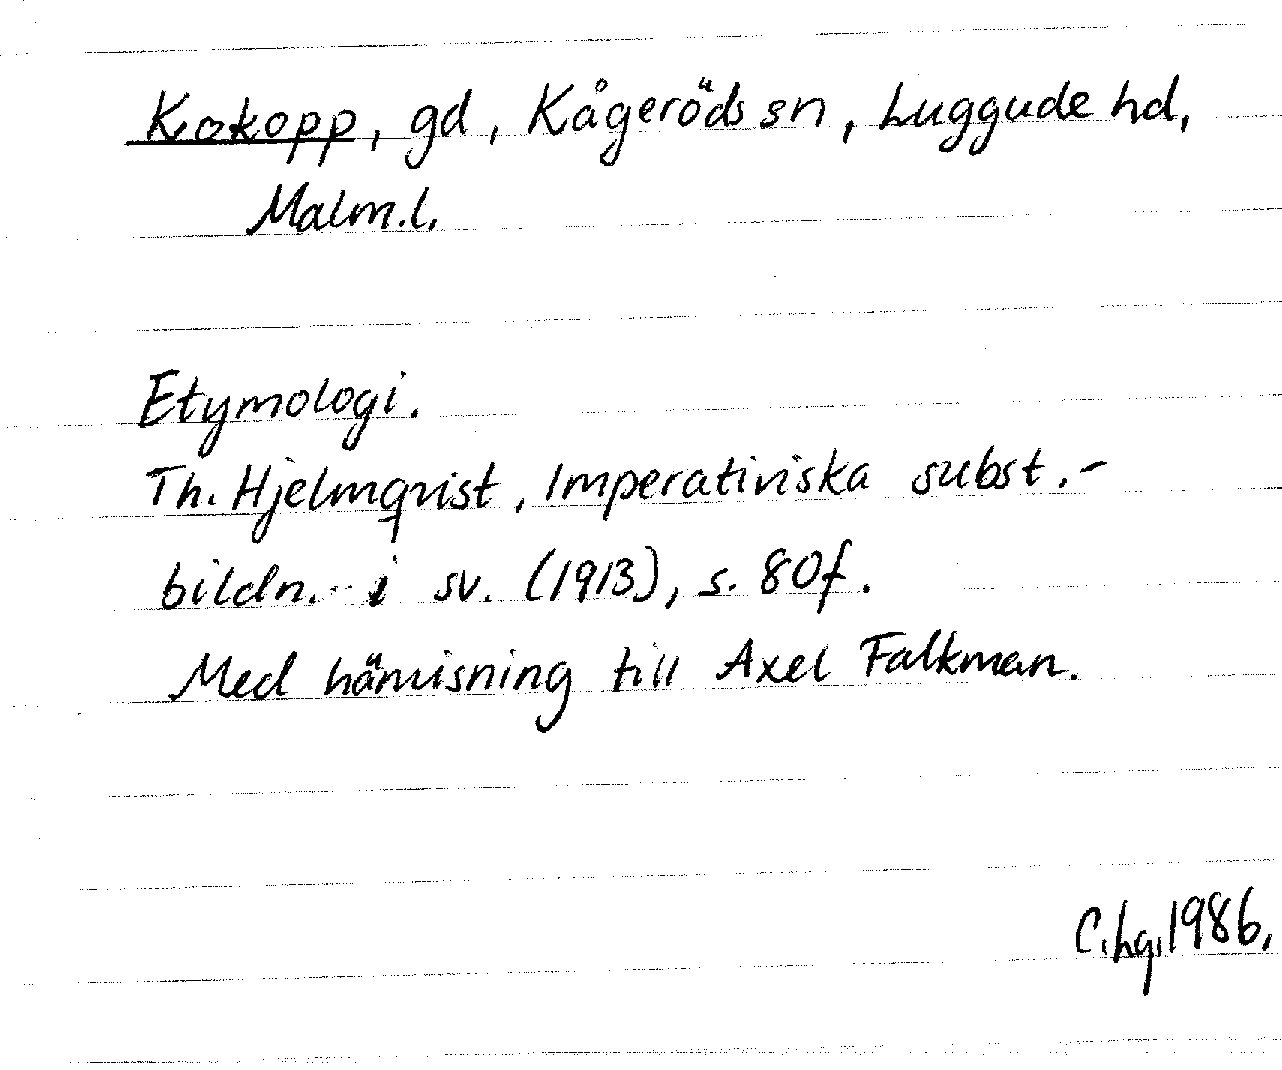 Kokopp, gd, Kågeröds sn, Luggude hd,
Malm.l.
Etymologi.
Th. Hjelmqvist, Imperativiska subst.-
bildn. i sv. (1913), s. 80f.
Med hänvisning till Axel Falkman.
C.hg.1986.